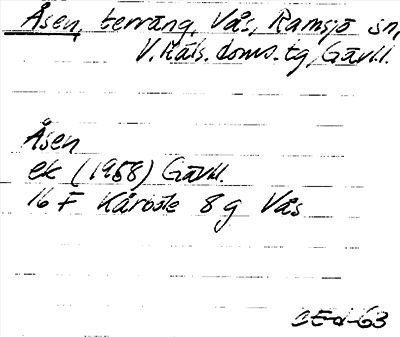 Åsen, terräng, Vås, Ramsjö sn,
V. Häls. doms. tg, Gävl.l.
Åsen
ek (1958) Gävll.
16 F Kårböle 8g Vås